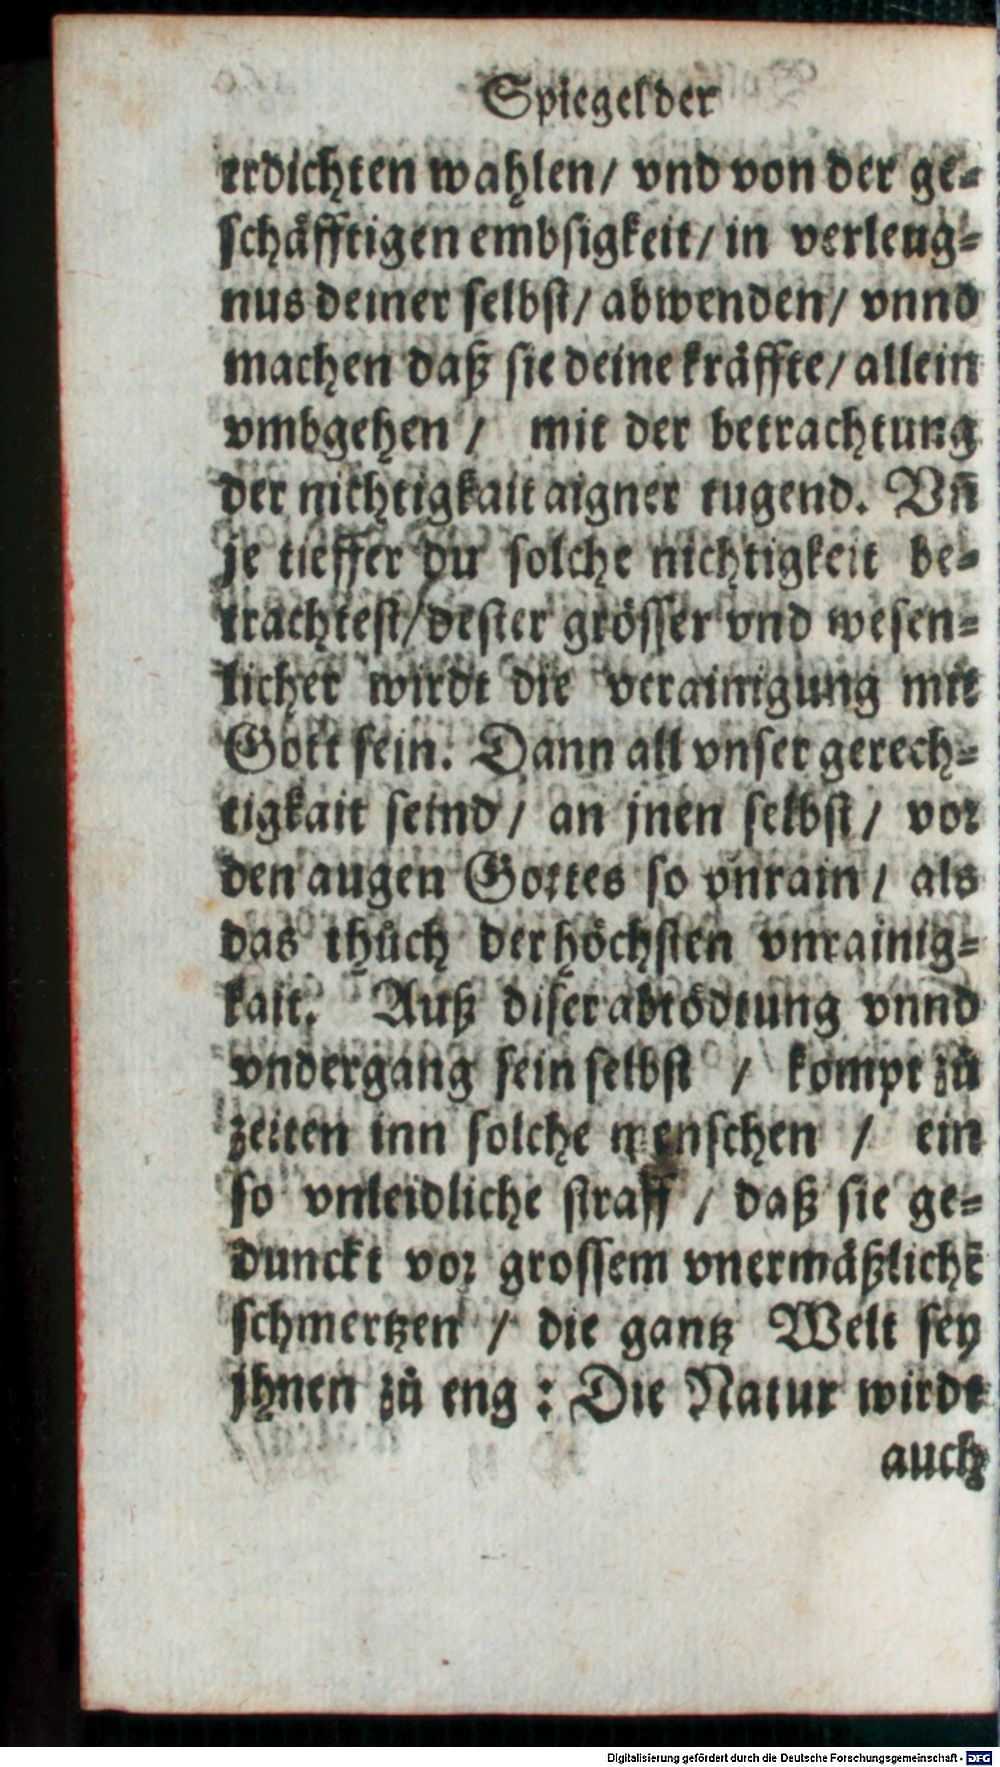 Spiegel der
erdichten wahlen/ vnd von der ge⸗
schåfftigen embsigkeit/ in verleug⸗
nus deiner selbst/ abwenden/ vnnd
machen daß sie deine kråffte/ allein
vmbgehen / mit der betrachtung
der nichtigkait aigner tugend. Vñ
je tieffer du solche nichtigkeit be⸗
trachtest/ dester grösser vnd wesen⸗
licher wirdt die verainigung mit
Gott sein. Dann all vnser gerech⸗
tigkait seind / an jnen selbst / vor
den augen Gottes so vnrain / als
das thůch der höchsten vnrainig⸗
kait. Auß diser abtödtung vnnd
vndergang sein selbst / kompt zů
zeiten inn solche menschen / ein
so vnleidliche straff / daß sie ge⸗
dunckt vor grossem vnermåßlichẽ
schmertzen / die gantz Welt sey
jhnen zů eng : Die Natur wirdt
auch
Digitalisierung gefördert durch die Deutsche Forschungsgemeinschaft - DFG